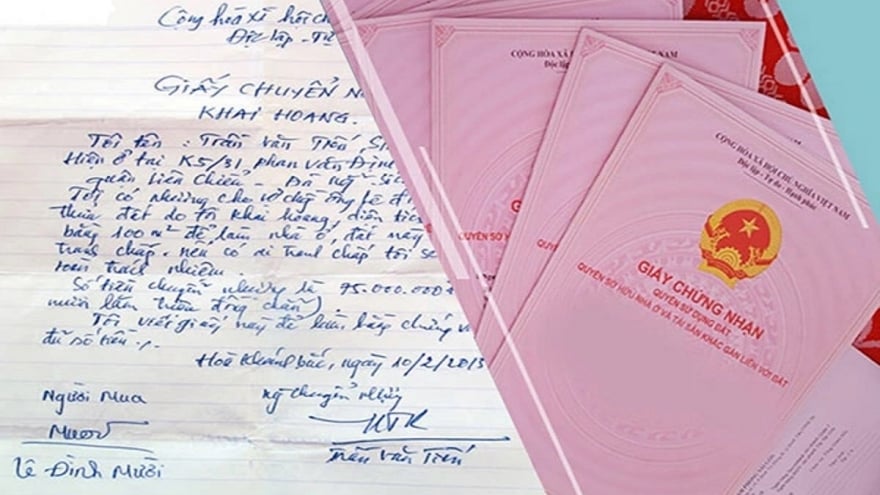 Cộng hòa xã hội ch
Độc lập - Tự
GIẤY CHUYỂN N
KHAI HOANG.
Tôi tên : Trần Văn Tiến, S
Hiện ở tại K5/31, phan Văn Định
quận Liên Chiểu - Đà Nẵ
Tôi có nhường cho vợ chồng ông lê đ
thửa đất do tôi khai hoang, diện tíc
bằng 100m² để làm nhà ở, đất này
tranh chấp. nếu có ai tranh chấp tôi s
toàn trách nhiệm.
Số tiền chuyển nhường là 75.000.000
mươi lăm triệu đồng chẵn)
Tôi viết giấy này để làm bằng chứng v
đủ số tiền ./.
Hoà Khánh bắc, ngày 10/2/2013
Người Mua
chuyển nhượng
Mười
Lê Đình Mười
Trần Văn Tiến
CỘNG HÒA XÃ HỘI NAM
Độc lập
CỘNG HÒA XÃ HỘI CHỦ NGHĨA VIỆT NAM
Độc lập - Tự do - Hạnh phúc
G
QUYỀN SỞ
QUYỀN SỞ HỮU
GIẤY CHỨNG NHẬN
QUYỀN SỬ DỤNG ĐẤT
QUYỀN SỞ HỮU NHÀ Ở VÀ TÀI SẢN KHÁC GẮN LIỀN VỚI ĐẤT